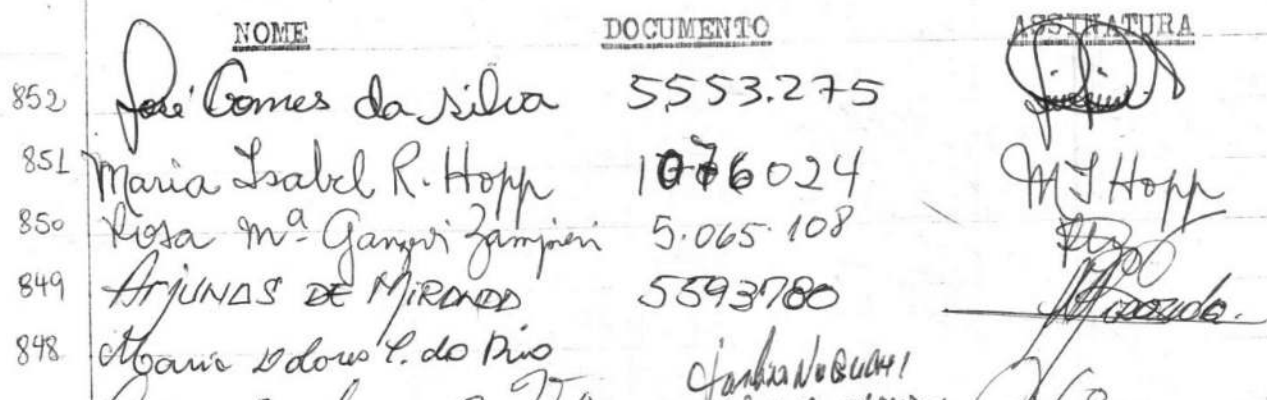 NOME DOCUMENTO ASSINATURA
852 José Gomes da Silva 5553.275
851 Maria Isabel R. Hopp 1076024 M I Hopp
850 Rosa Mª Zampieri 5.065.108
849 ARJUNAS DE MIRANDA 5593780
848 Maria Dolores P. do